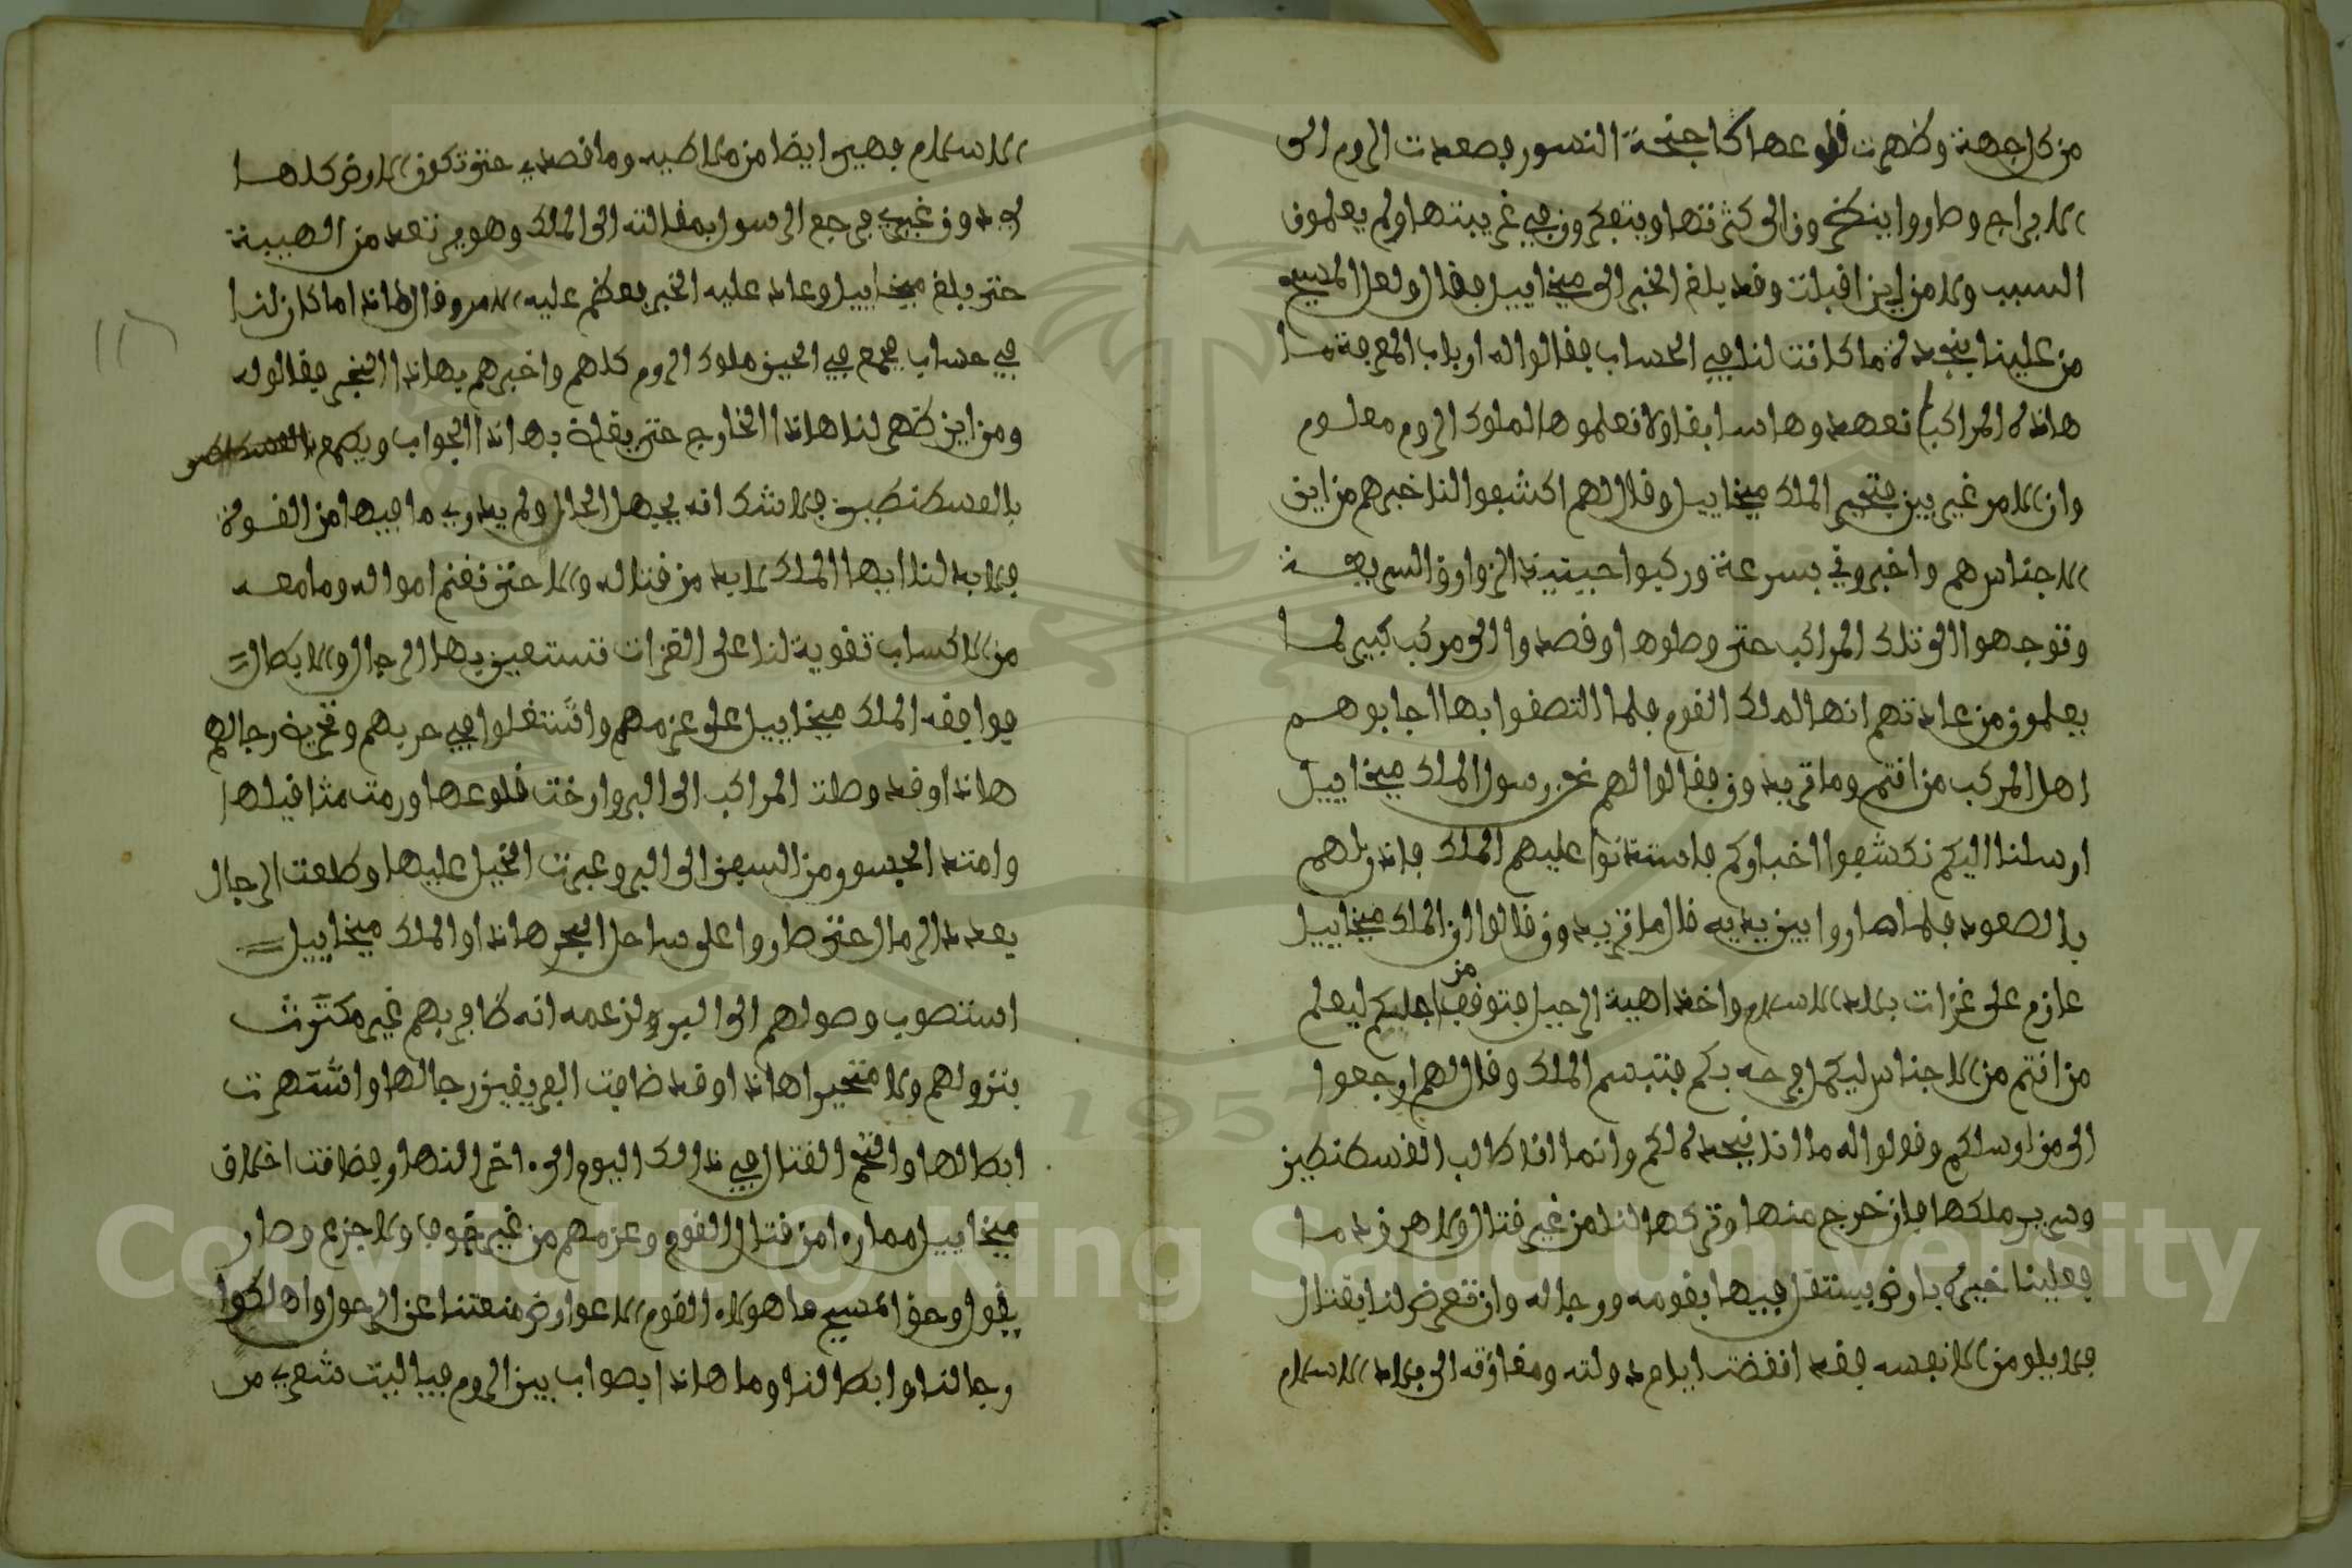 من كل جهة وظهرت قلوعها كاجنحة النسور فصعدت الروم الى
الابراج وصاروا ينظرون الى كثرتها ويتفكرون في غريبتها ولم يعلمون
السبب ولا من اين اقبلت وقد بلغ الخبر الى ميخاييل فقال ولعل المسيح
من علينا بنجدة ما كانت لنا في الحساب فقالوا له ارباب المعرفة ما
هاذه المراكب نعهدوها سابقا ولا نعلموها لملوك الروم معلوم
وان الامر غير بين فتحير الملك ميخاييل وقال لهم اكشفوا لنا خبرهم من اين
الاجناس هم واخبروني بسرعة وركبوا حينيذ الزوارق السريعة
وتوجهوا الى تلك المراكب حتى وصلوها وقصدوا الى مركب كبير لما
يعلمون من عادتهم انها لملك القوم فلما التصقوا بها اجابوهم
اهل المركب من انتم وما تريدون فقالوا لهم نحن رسول الملك ميخاييل
ارسلنا اليكم نكشفوا اخباركم فاستاذنوا عليهم الملك فاذن لهم
بالصعود فلما صاروا بين يديه قال ما تريدون قالوا ان الملك ميخاييل
عازم على غزات بلاد الاسلام واخذ اهبة الرحيل فتوقف من اجلكم ليعلم
من انتم من الاجناس ليكمل فرحه بكم فتبسم الملك وقال لهم ارجعوا
الى من ارسلكم وقولوا له ما انا نجدة لكم وانما انا طالب القسطنطين
وسرير ملكها فان خرج منها وتركها لنا من غير قتال ولا هرق دما
فعلينا خيره بارض يستقل فيها بقومه ورجاله وان تعرض لنا بقتال
فلا يلوم الا نفسه فقد انقضت ايام دولته ومغازته الى بلاد الاسلام
الاسلام فهي ايضا من ملاطيه وما قصدي حتى تكون الارض كلها
لي دون غيري فرجع الرسول بمقالته الى الملك وهو يرتعد من الهيبة
حتى بلغ ميخاييل وعاد عليه الخبر فعظم عليه الامر وقال هاذا ما كان لنا
في حساب فجمع في الحين ملوك الروم كلهم واخبرهم بهاذا الخبر فقالوا له
ومن اين ظهر لنا هاذا الخارج حتى يقلة بهاذا الجواب ويطمع
بالقسطنطين فلا شك انه يجهل الحال ولم يدري ما فيها من القوة
فلا بد لنا ايها الملك لا بد من قتاله والا حتى نغنم امواله وما معه
من الاكساب تقوية لنا على الغزات نستعين بها الرجال والابطال
فوافقه الملك ميخاييل على عزمهم واشتغلوا في حربهم وتحرية رجالهم
هاذا وقد وصلت المراكب الى البر وارخت قلوعها ورمت مثاقيلها
وامتد الجسور من السفن الى البر وعبرت الخيل عليها وطلعت الرجال
بعدد الرمال حتى صاروا على ساحل البحر هاذا والملك ميخاييل
استصوب وصولهم الى البر ولزعمه انه ظافر بهم غير مكترث
بنزولهم ولا متحيرا هاذا وقد ضافت الفريقين رجالها واشتهرت
ابطالها والتحم القتال في ذالك اليوم الى اخر النهار فضاقت اخلاق
ميخاييل مما را من قتال القوم وعزمهم من غير خوف ولا جزع وصار
يقول وحق المسيح ما هولاء القوم الا عوارض منعتنا عن الرحول واهلكوا
رجالنا وابطالنا وما هاذا بصواب بين الروم فياليت شعري من